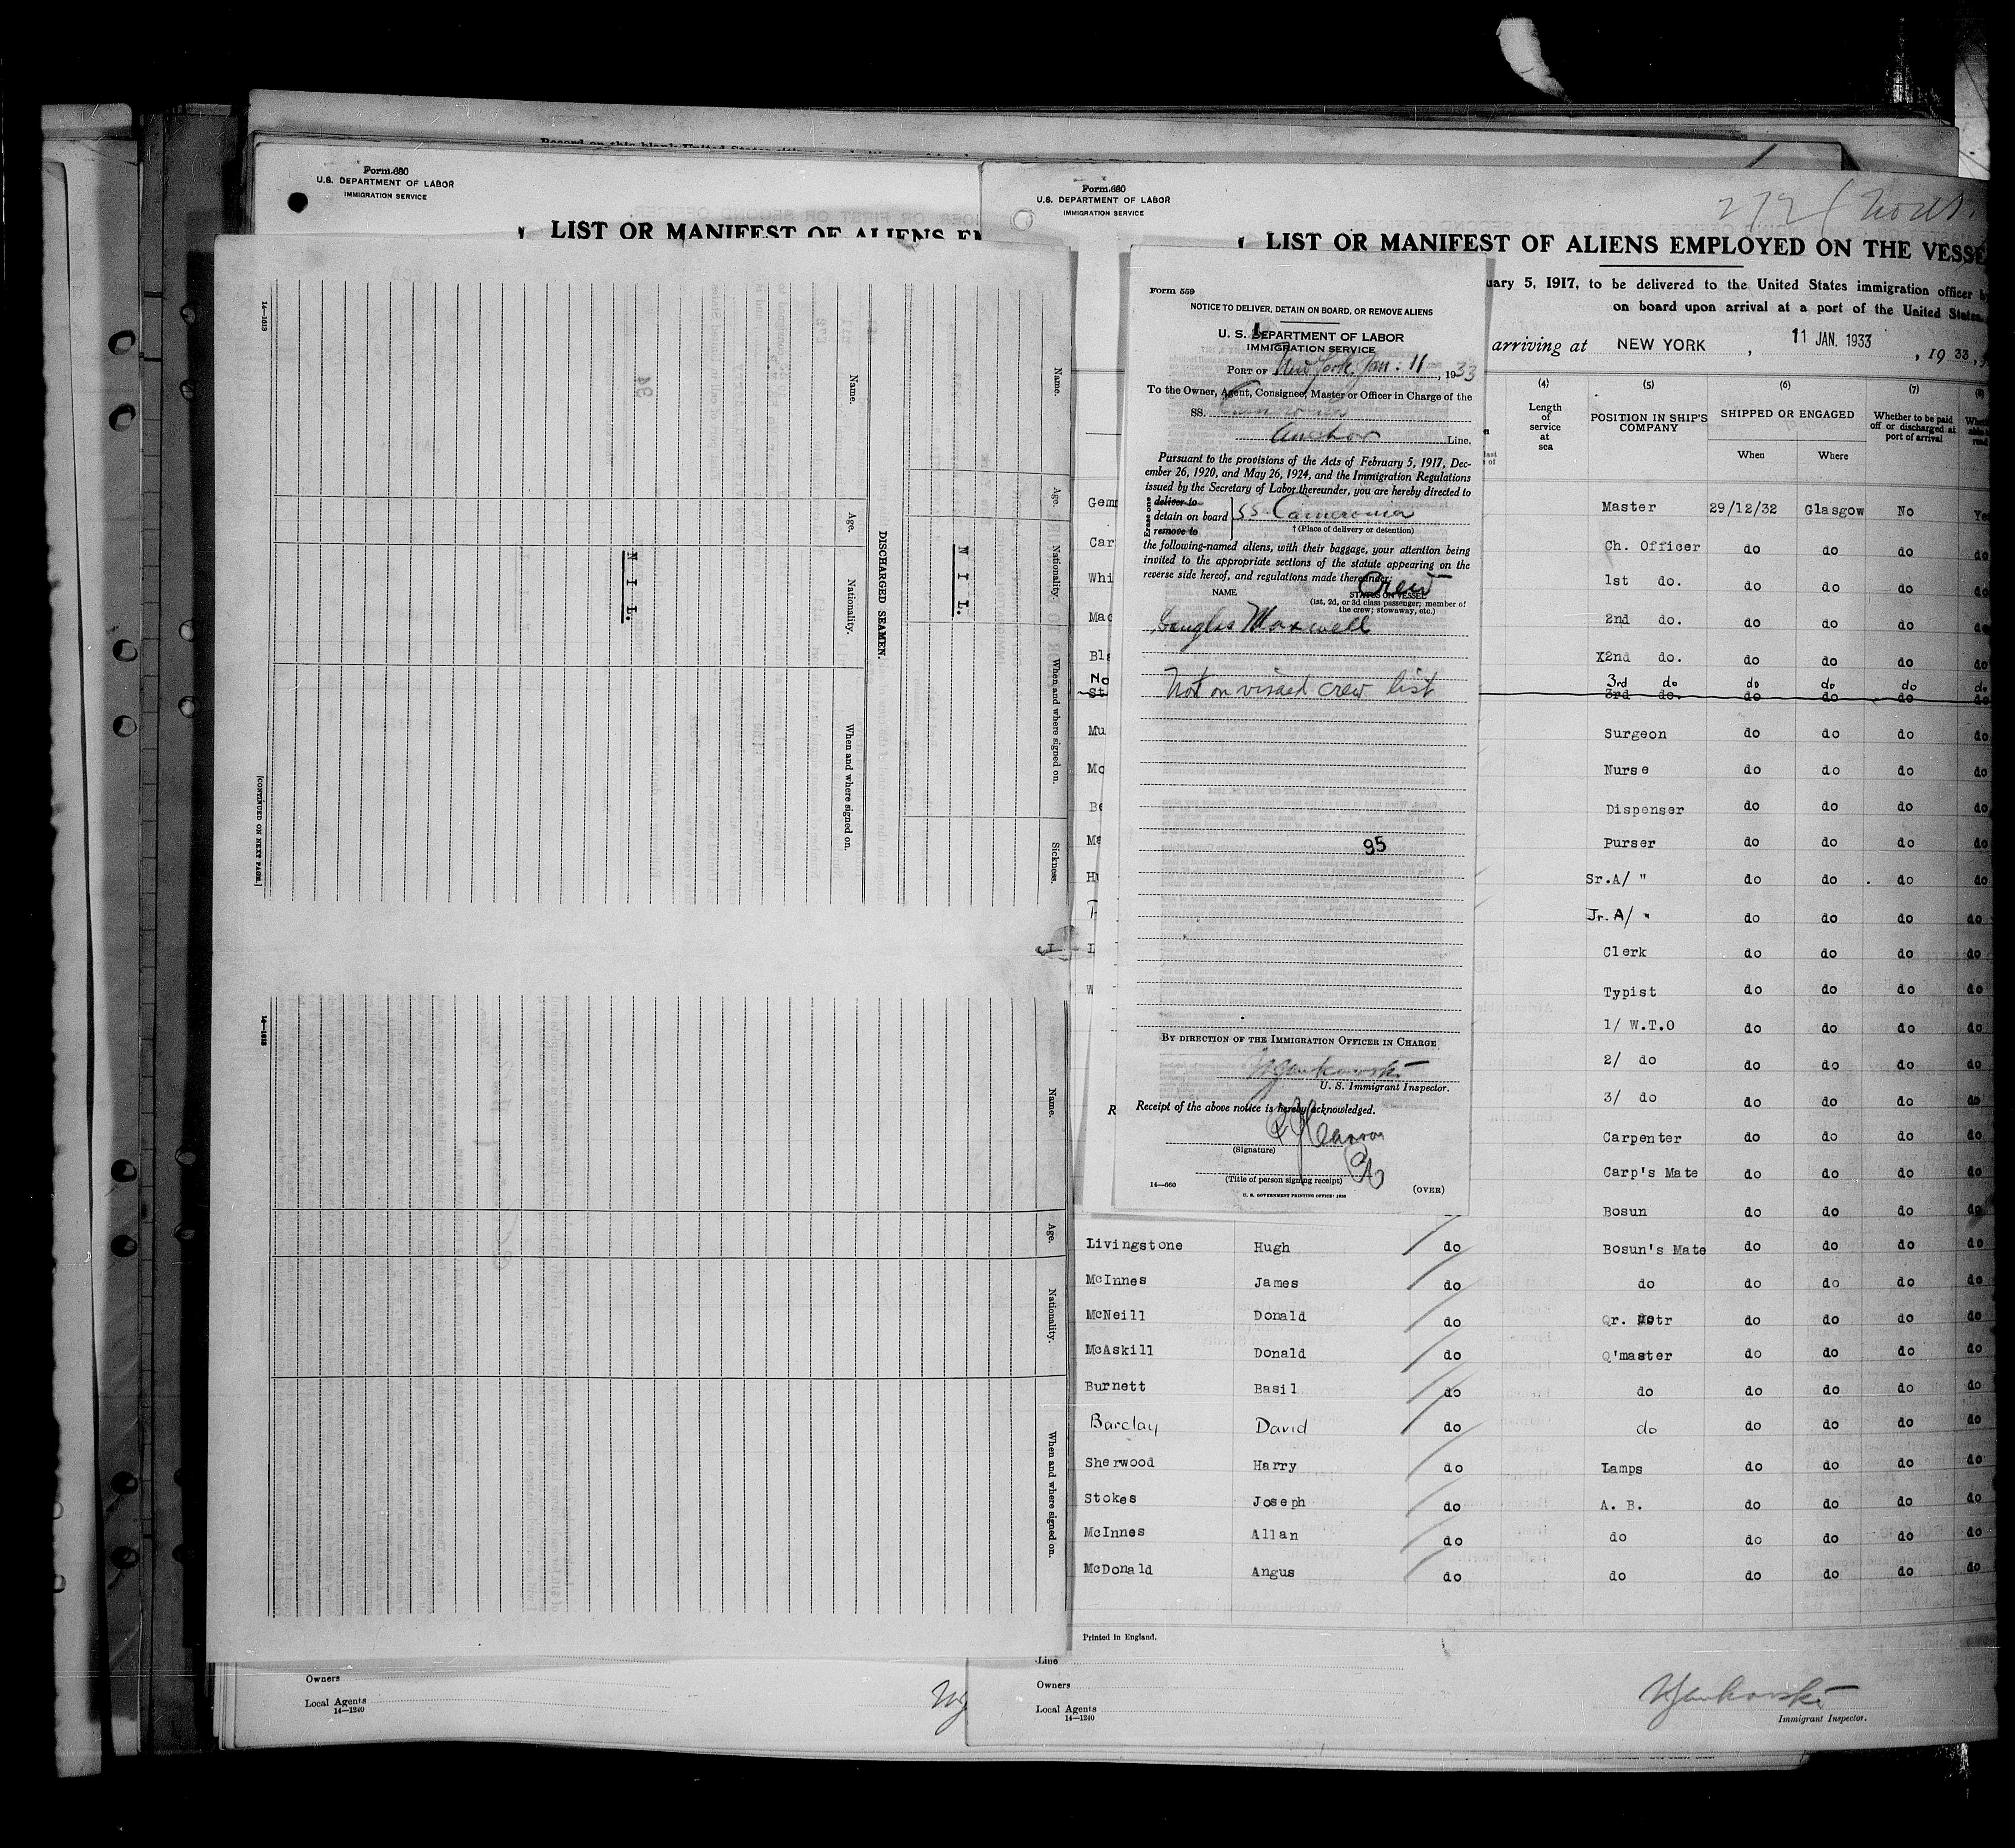 Form 680
U.S. DEPARTMENT OF LABOR
IMMIGRATION SERVICE
LIST OR MANIFEST OF ALIENS EM
14—1240
Name.
Age.
Nationality.
When and where signed on.
Sickness.
N I L.
DISCHARGED SEAMEN.
Name.
Age.
Nationality.
When and where signed on.
N I L.
[CONTINUED ON NEXT PAGE.]
Name.
Age.
Nationality.
When and where signed on.
Owners
Local Agents
Form 680
U.S. DEPARTMENT OF LABOR
IMMIGRATION SERVICE
LIST OR MANIFEST OF ALIENS EMPLOYED ON THE VESSE
uary 5, 1917, to be delivered to the United States immigration officer b
on board upon arrival at a port of the United States.
arriving at NEW YORK, 11 JAN. 1933, 19 33,
(4) (5) (6) (7) (8)
Length of service at sea
POSITION IN SHIP'S COMPANY
SHIPPED OR ENGAGED
When Where
Whether to be paid off or discharged at port of arrival
Form 559
NOTICE TO DELIVER, DETAIN ON BOARD, OR REMOVE ALIENS
U. S. DEPARTMENT OF LABOR
IMMIGRATION SERVICE
PORT OF New York Jan: 11, 1933
To the Owner, Agent, Consignee, Master or Officer in Charge of the
SS. Cameronia
Anchor Line.
Pursuant to the provisions of the Acts of February 5, 1917, Dec-
ember 26, 1920, and May 26, 1924, and the Immigration Regulations
issued by the Secretary of Labor thereunder, you are hereby directed to
Erase one
deliver to
detain on board SS Cameronia
† (Place of delivery or detention)
remove to
the following-named aliens, with their baggage, your attention being
invited to the appropriate sections of the statute appearing on the
reverse side hereof, and regulations made thereunder:
Crew
NAME STATUS ON VESSEL
(1st, 2d, or 3d class passenger; member of
the crew; stowaway, etc.)
Douglas Maxwell
Not on visaed crew list
95
BY DIRECTION OF THE IMMIGRATION OFFICER IN CHARGE
U. S. Immigrant Inspector.
Receipt of the above notice is hereby acknowledged.
(Signature)
(Title of person signing receipt)
14—660
(OVER)
U. S. GOVERNMENT PRINTING OFFICE: 1930
Gem Master 29/12/32 Glasgow No Yes
Car Ch. Officer do do do do
Whi 1st do. do do do do
Mac 2nd do. do do do do
Bla X2nd do. do do do do
No 3rd do do do do do
St 3rd do. do do do do
Mu Surgeon do do do do
Mc Nurse do do do do
Be Dispenser do do do do
Ma Purser do do do do
Sr.A/ " do do do do
Jr. A/ " do do do do
Clerk do do do do
W Typist do do do do
1/ W.T.O do do do do
2/ do do do do do
3/ do do do do do
Carpenter do do do do
Carp's Mate do do do do
Bosun do do do do
Livingstone Hugh do Bosun's Mate do do do do
McInnes James do do do do do do
McNeill Donald do Qr. Mstr do do do do
McAskill Donald do Q'master do do do do
Burnett Basil do do do do do do
Barclay David do do do do do do
Sherwood Harry do Lamps do do do do
Stokes Joseph do A. B. do do do do
McInnes Allan do do do do do do
McDonald Angus do do do do do do
Printed in England.
Line
Owners
Local Agents
14—1240
Immigrant Inspector.